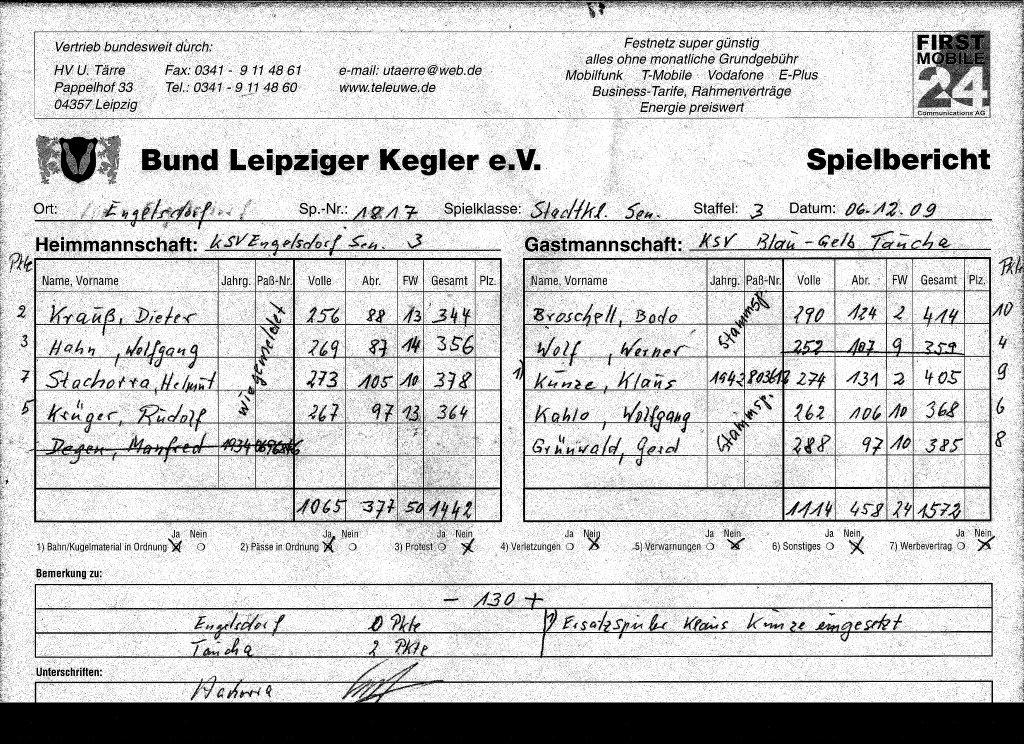 Vertrieb bundesweit durch:
HV U. Tärre Fax: 0341 - 9 11 48 61 e-mail: utaerre@web.de
Pappelhof 33 Tel.: 0341 - 9 11 48 60 www.teleuwe.de
04357 Leipzig
Festnetz super günstig
alles ohne monatliche Grundgebühr
Mobilfunk T-Mobile Vodafone E-Plus
Business-Tarife, Rahmenverträge
Energie preiswert
FIRST
MOBILE
24
Communications AG
Bund Leipziger Kegler e.V. Spielbericht
Ort: Engelsdorf Sp.-Nr.: 1817 Spielklasse: Stadtkl. Sen. Staffel: 3 Datum: 06.12.09
Heimmannschaft: KSV Engelsdorf Sen. 3 Gastmannschaft: KSV Blau-Gelb Taucha
Pkte Name, Vorname Jahrg. Paß-Nr. Volle Abr. FW Gesamt Plz.
2 Krauß, Dieter 256 88 13 344
3 Hahn, Wolfgang 269 87 14 356
7 Stachorra, Helmut 273 105 10 378
5 Krüger, Rudolf 267 97 13 364
Degen, Manfred 1934
wiegemeldet
1065 377 50 1442
Name, Vorname Jahrg. Paß-Nr. Volle Abr. FW Gesamt Plz. Pkte
Broschell, Bodo 290 124 2 414 10
Wolf, Werner 252 107 9 359 4
1) Kunze, Klaus 1942 803612 274 131 2 405 9
Kahlo, Wolfgang 262 106 10 368 6
Grünwald, Gerd 288 97 10 385 8
Stammsp.
Stammsp.
1114 458 24 1572
Ja Nein Ja Nein Ja Nein Ja Nein Ja Nein Ja Nein Ja Nein
1) Bahn/Kugelmaterial in Ordnung 2) Pässe in Ordnung 3) Protest 4) Verletzungen 5) Verwarnungen 6) Sonstiges 7) Werbevertrag
Bemerkung zu:
- 130 +
Engelsdorf 0 Pkte 1) Ersatzspieler Klaus Kunze eingesetzt
Taucha 2 Pkte
Unterschriften:
Stachorra